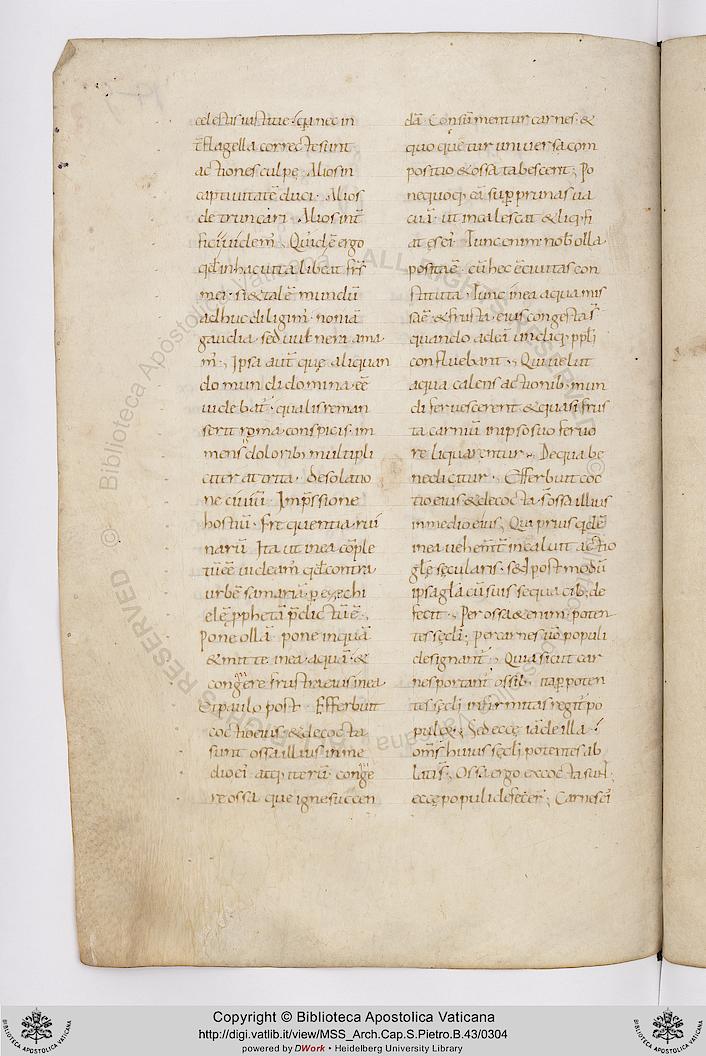 celestis iustitie · qa nec in
t̄ flagella correcte sunt
actiones culpę · Alios in
captiuitatē duci · Alios
detruncari · Alios int̄
fici uidem̄ · Quid ē ergo
qđ in hac uita libeat frs̄
mei · si & talē mundū
adhuc diligim̄ · non iā
gaudia · sed uulnera ama
m̄ · Ipsa aut̄ que aliquan
do mundi domina eē
uidebat̄ · qualis reman
serit roma conspicis · im
mensis doloribꝫ multipli
citer attrita · desolatio
ne ciuiū · Impressione
hostiū · Frequentia rui
narū · Ita ut in ea cōple
tū eē uideam̄ qđ contra
urbē samariā p ezechi
elē pphetā p̄dictū ē ·
Pone ollā · pone inquā
& mitte in ea aquā · &
congere frustra eius in ea
Et paulo post · Efferbuit
coctio eius · & decocta
sunt ossa illius in me
dio ei · atq iterū · conge
re ossa que igne succen
dā · Consumentur carnes · &
quoquetur uniuersa com
positio & ossa tabescent · Po
ne quoq eā sup prunas ua
cuā · ut incalescat & liqfi
at ęs ei · Tunc enim nob olla
posita ē · cū hec ciuitas con
stituta · Tunc in ea aqua mis
sa ē & frusta eius congesta s̄
quando ad eā undiq ppli
confluebant · Qui uelut
aqua calens actionibꝫ mun
di feruescerent & quasi frus
ta carniū in ipso suo feruo
re liquarentur · De qua be
ne dicitur · Efferbuit coc
tio eius & decocta s̄ ossa illius
in medio eius · Qui prius qdē
in ea uehemt̄ incaluit actio
glę sęcularis · sed post modū
ipsa glā cū suis sequacibꝫ de
fecit · Per ossa etenim poten
tes sęcli · per carnes uō populi
designant̄ · Quia sicut car
nes portant̄ ossibꝫ · ita p poten
tes sęcli infirmitas regit̄ po
pulorꝫ · Sed ecce iā de illa
oms̄ huius sęcli potentes ab
lati s̄ · Ossa ergo excocta sunt ·
ecce populi defecer̄ · Carnes ei
Copyright © Biblioteca Apostolica Vaticana
http://digi.vatlib.it/view/MSS_Arch.Cap.S.Pietro.B.43/0304
powered by DWork • Heidelberg University Library